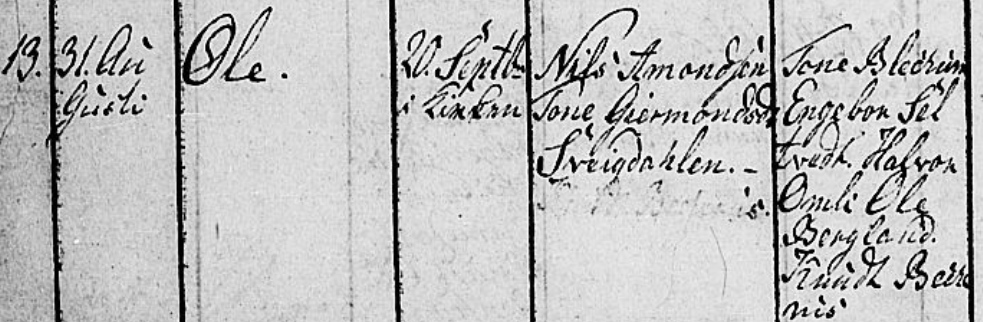 13.
31. Au
Gusti
Ole.
20. Septb:
i Kirken
Nils Amondsen
Tone Giermondsdr
Sveigdahlen. -
Tone
Engebor Sel
tvedt. Halvor
Omli Ole
Bergland.
Knudt